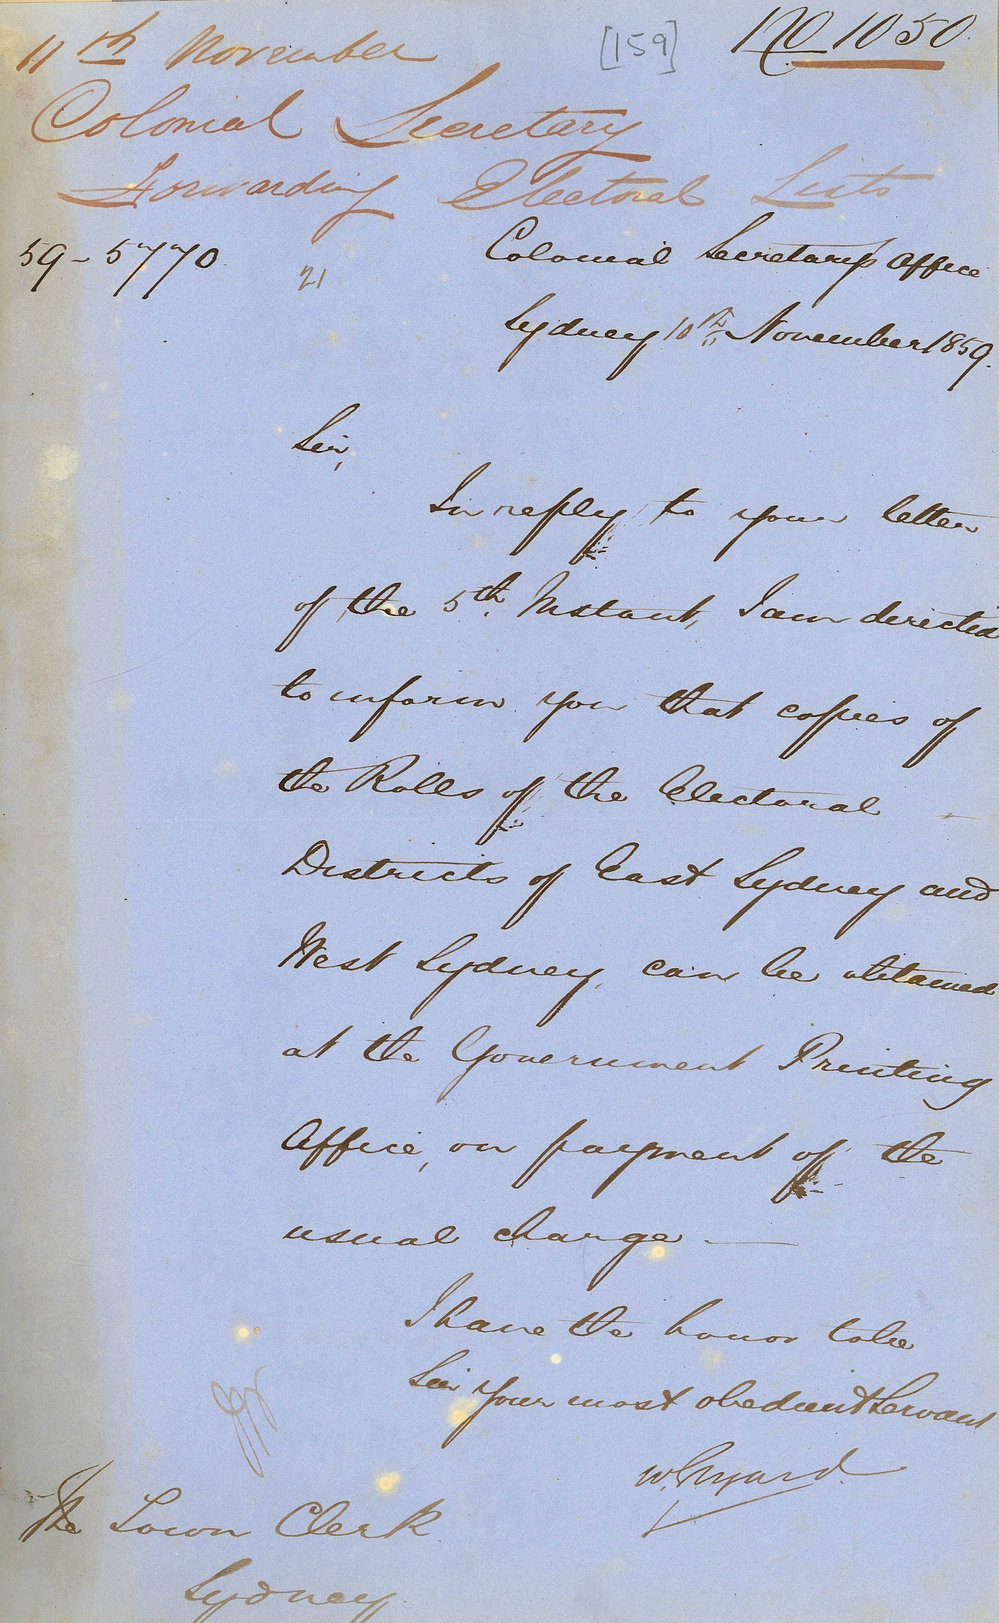 11th November
[159]
No 1050
Colonial Secretary
Forwarding Electoral Lists
59-5770
21
Colonial Secretarys Office
Sydney 10th November 1859.
Sir,
In reply to your letter
of the 5th Instant, I am directed
to inform you that copies of
the Rolls of the Electoral
Districts of East Sydney and
West Sydney, can be obtained
at the Government Printing
Office, on payment of the
usual charge —
I have the honor to be
Sir your most obedient Servant
The Town Clerk
Sydney